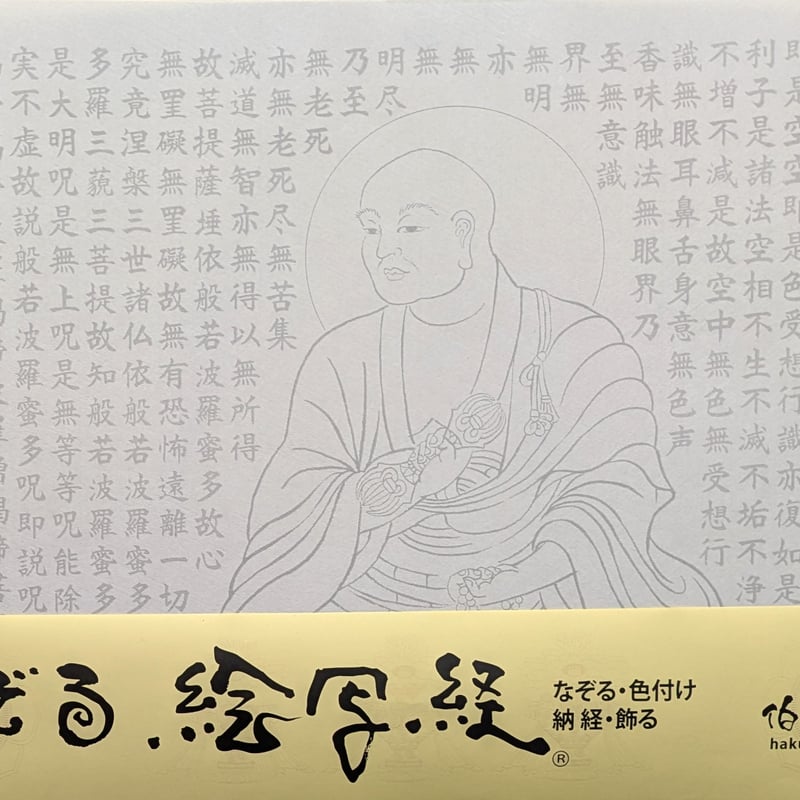 即是空空即是色受想行識亦復如是
利子是諸法空相不生不滅不垢不浄
不増不減是故空中無色無受想行
識無眼耳鼻舌身意無色声
香味触法無眼界乃
至無意識
界無
無明
亦
無
無
明尽
乃至
無老死
亦無老死尽無苦集
滅道無智亦無得以無所得
故菩提薩埵依般若波羅蜜多故心
無罣礙無罣礙故無有恐怖遠離一切
究竟涅槃三世諸仏依般若波羅蜜多
多羅三藐三菩提故知般若波羅蜜多
是大明呪是無上呪是無等等呪能除
実不虚故説般若波羅蜜多呪即説呪
ぞる.絵写経®
なぞる・色付け
納経・飾る
伯
haku